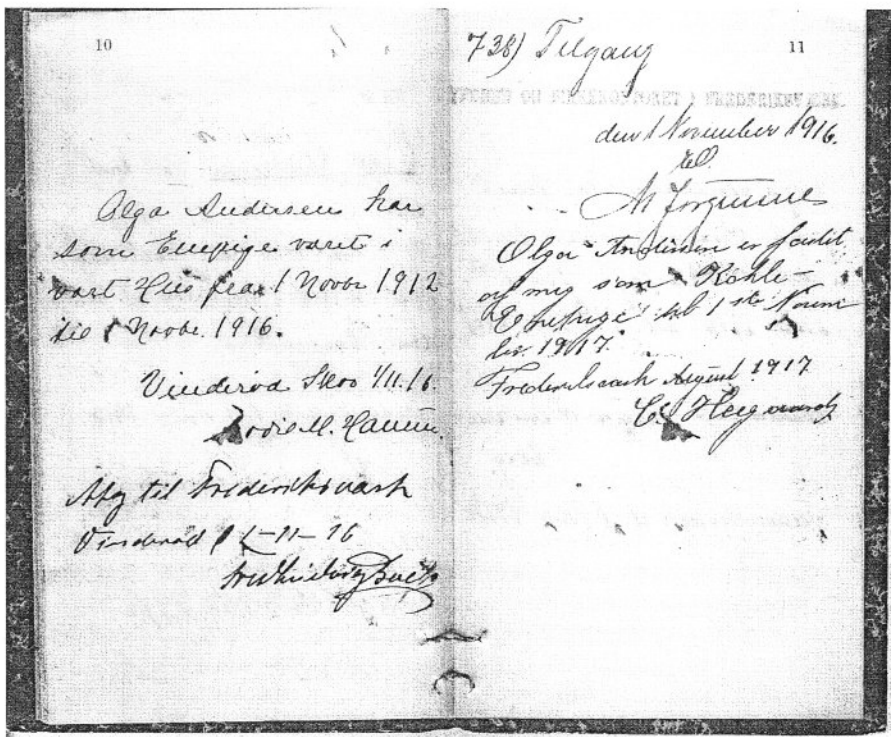 10
Olga Andersen har
som Enepige været i
vort Huus fra 1 Novbr 1912
til 1 Novbr. 1916.
Vinderød Skov 1/11.16.
M. Hansen.
Afg til Frederiksværk
Vinderød 1-11-16
11
738) Tilgang
FREDERIKSVÆRK.
den 1 November 1916.
Olga Andersen er fæstet
af mig som Kokke-
Enepige til 1ste Novem
ber. 1917.
Frederiksværk August 1917